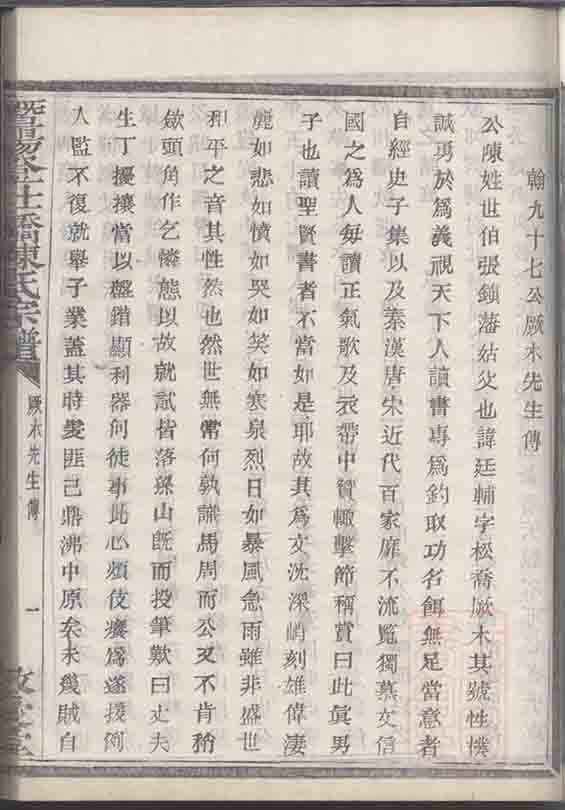 翰九十七公厥木先生傳
公陳姓世伯張鎮藩姑父也諱廷輔字松喬厥木其號性樸
誠勇於為義視天下人讀書專為釣取功名餌無足當意者
自經史子集以及秦漢唐宋近代百家靡不流覽獨慕文信
國之為人每讀正氣歌及衣帶中贊輙擊節稱賞曰此眞男
子也讀聖賢書者不當如是耶故其為文沈深峭刻雄偉淒
麗如悲如憤如哭如笑如寒泉烈日如暴風急雨雖非盛世
和平之音其性然也然世無常何孰識馬周而公又不肯稍
斂頭角作乞憐態以故就試皆落孫山既而投筆歎曰丈夫
生丁擾攘當以盤錯顯利器何徒事此心煩伎癢為遂援例
入監不復就舉子業蓋其時髮匪已鼎沸中原矣未幾賊自
暨陽登仕橋陳氏宗譜
厥木先生傳
一